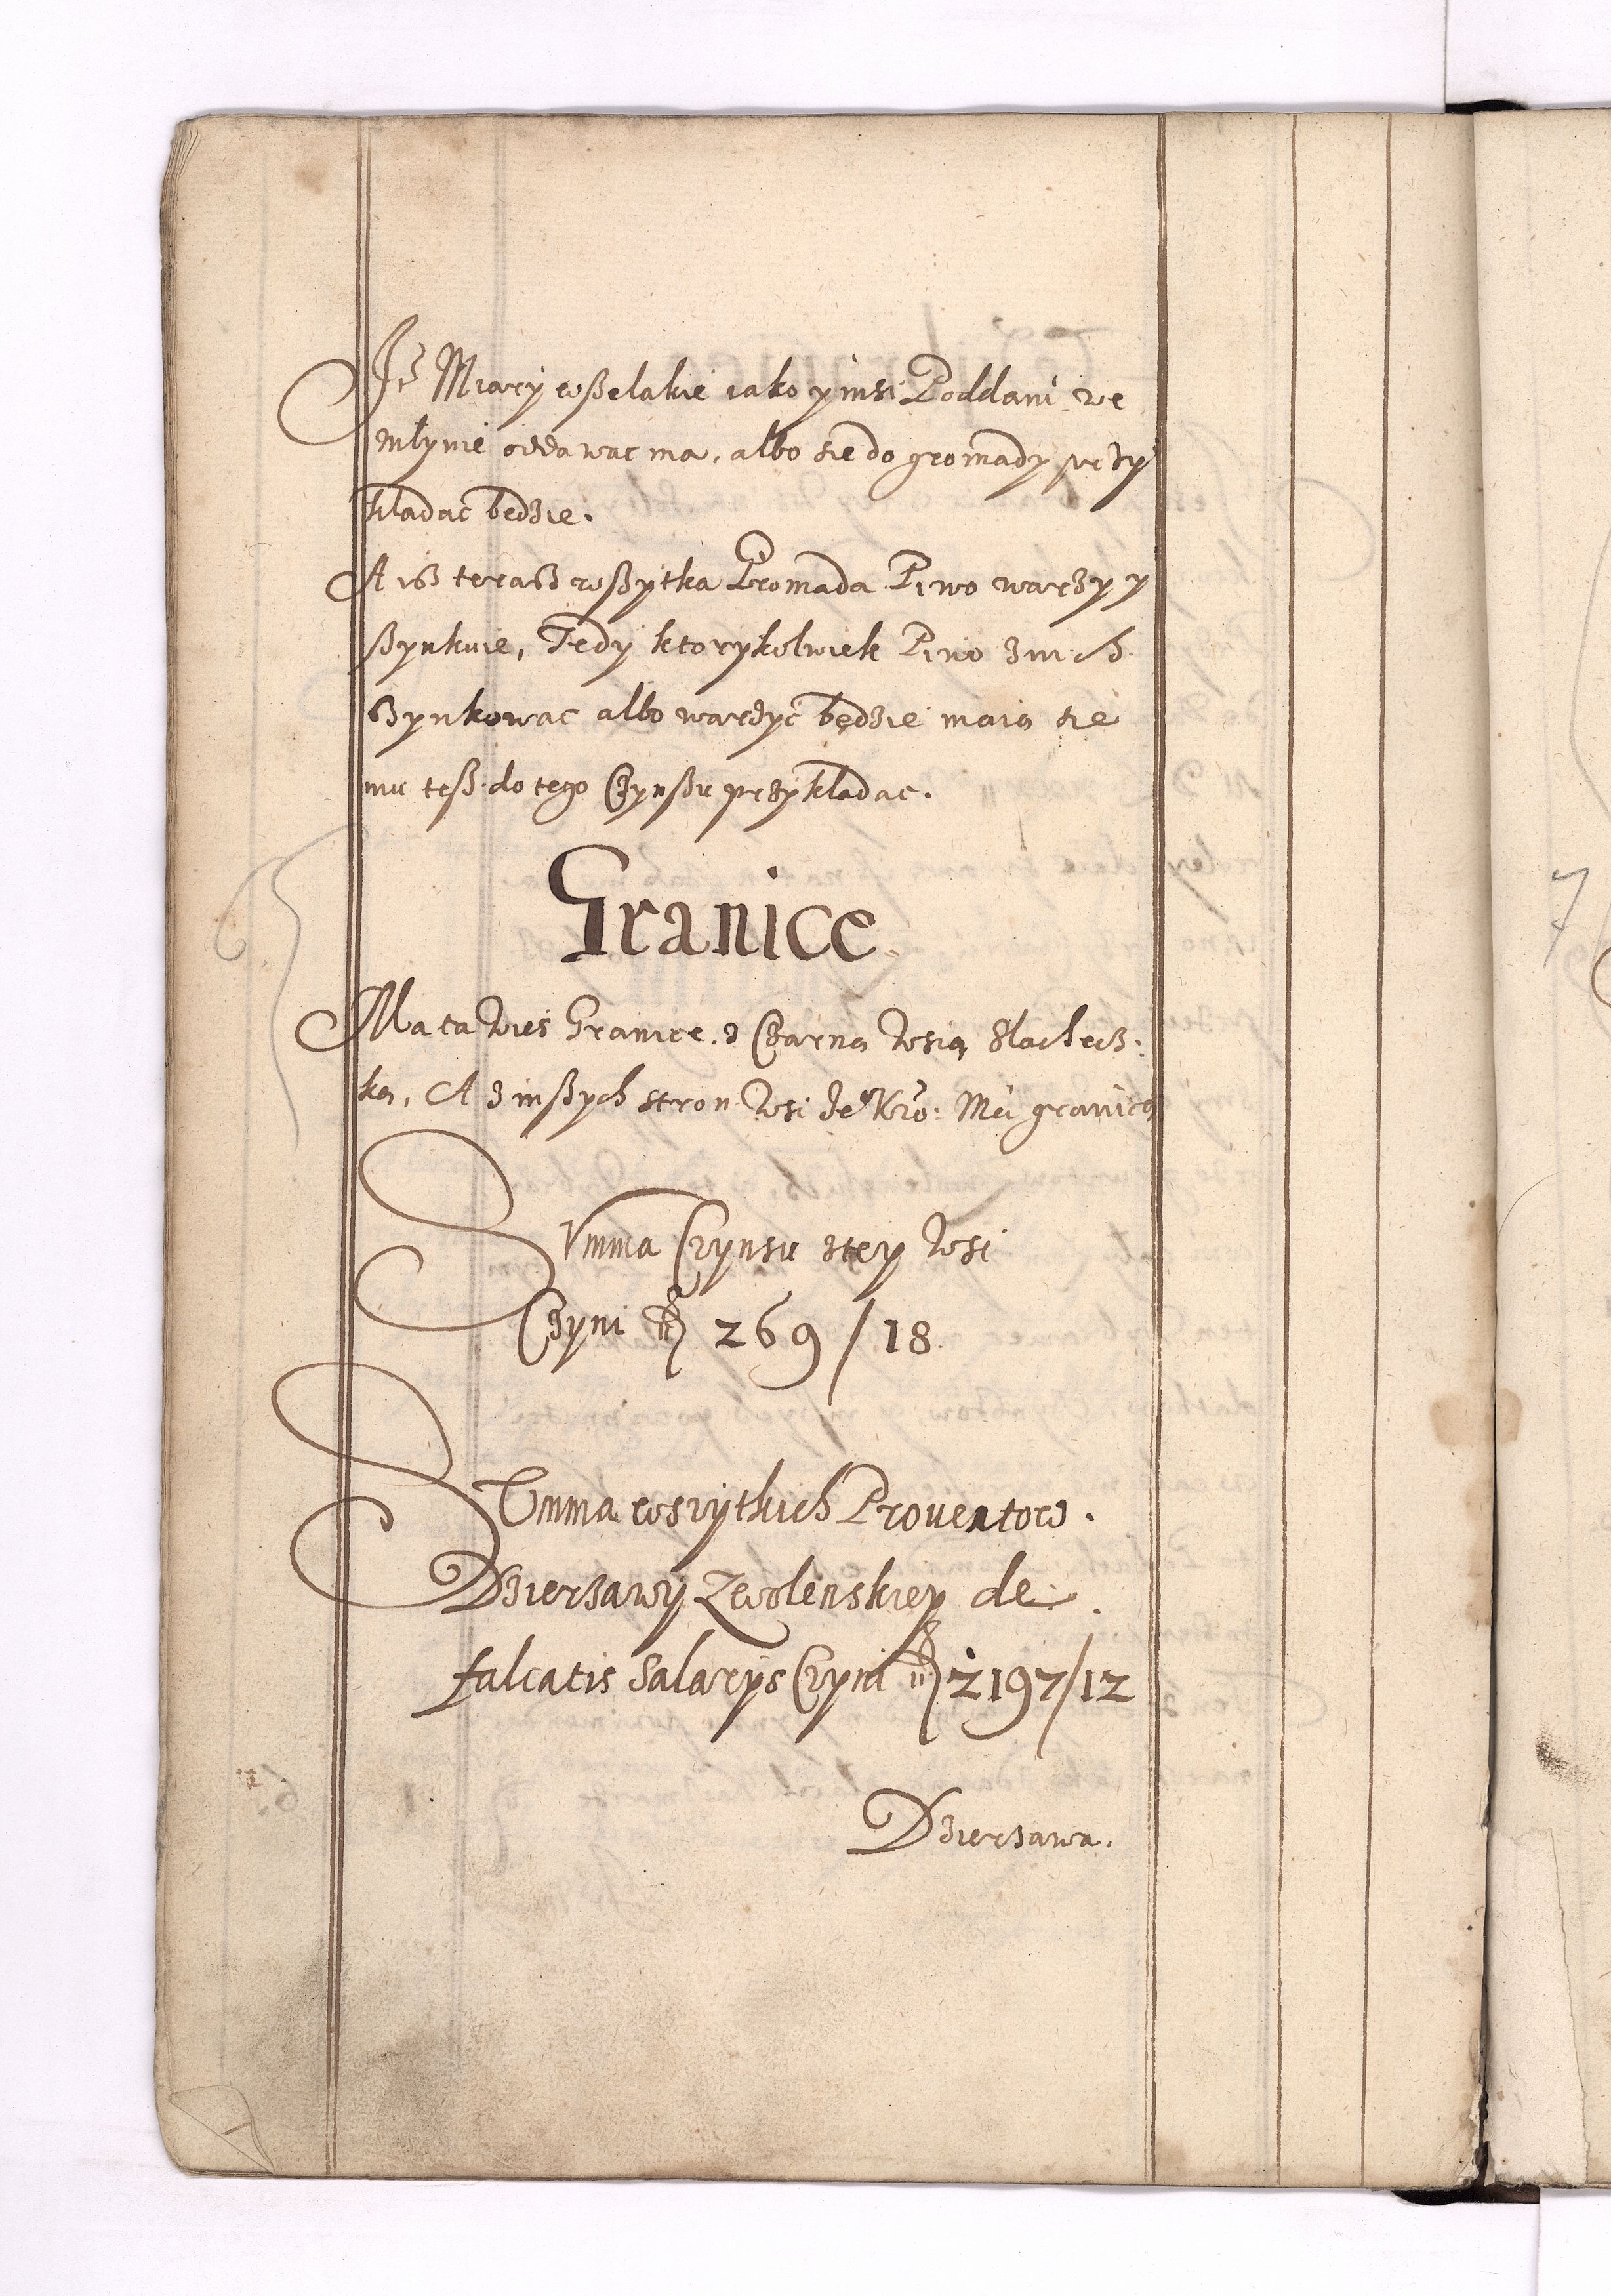 Iß Miary wßelakie iako y insi Poddani we
młynie oddawac ma, albo sie do gromady przy
kladac będzie.
A iß teraß wßytka Gromada Piwo warzy y
ßynkuie, Tedy ktorykolwiek Piwo z nich
ßynkowac albo warzyć będzie maią sie
mu teß do tego Czynßu przykladac.
Granice
Ma ta Wieś Granice z Czarną Wsią Slachecz:
ką, A z inßych stron Wsi Je° Kro: Mci granicą
Summa Czynsu z tey Wsi
Czyni 269/18.
Summa wszytkich Prouentow.
Dzierzawy Zwolenskiey de
falcatis Salarijs Czyni 2197/12
Dzierzawa.